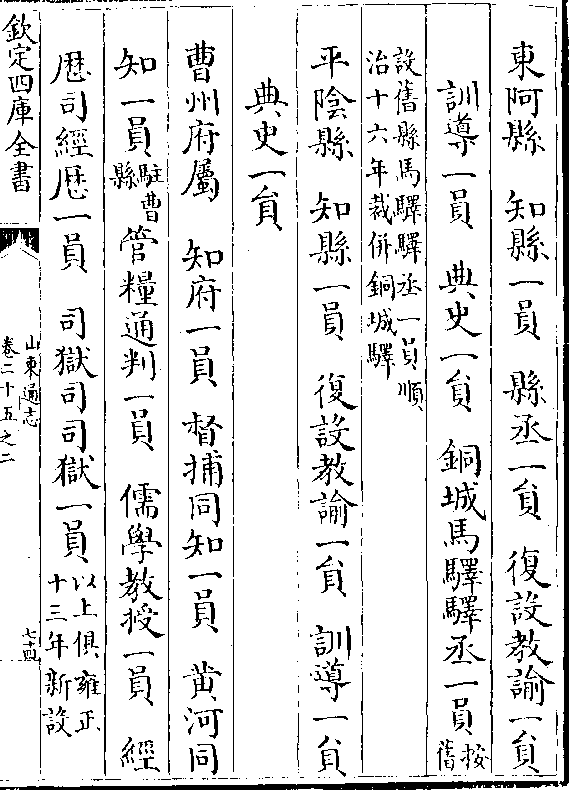 東阿縣　知縣一員　縣丞一員　復設教諭一員
訓導一員　典史一員　銅城馬驛驛丞一員按舊
設舊縣馬驛驛丞一員順
治十六年裁併銅城驛
平陰縣　知縣一員　復設教諭一員　訓導一員
典史一員
曹州府屬　知府一員　督捕同知一員　黄河同
知一員駐曹縣管糧通判一員　儒學教授一員　經
歴司經歴一員　司獄司司獄一員以上俱雍正十三年新設
欽定四庫全書
山東通志
卷二十五之二
七十四